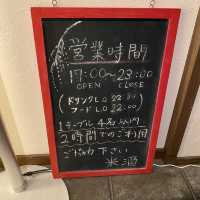 営業時間
17:00~23:00
OPEN CLOSE
(ドリンクL.O 22:30)
(フードL.O 22:00)
1テーブル 4名以内
2時間でのご利用
ご協力下さい
米酒